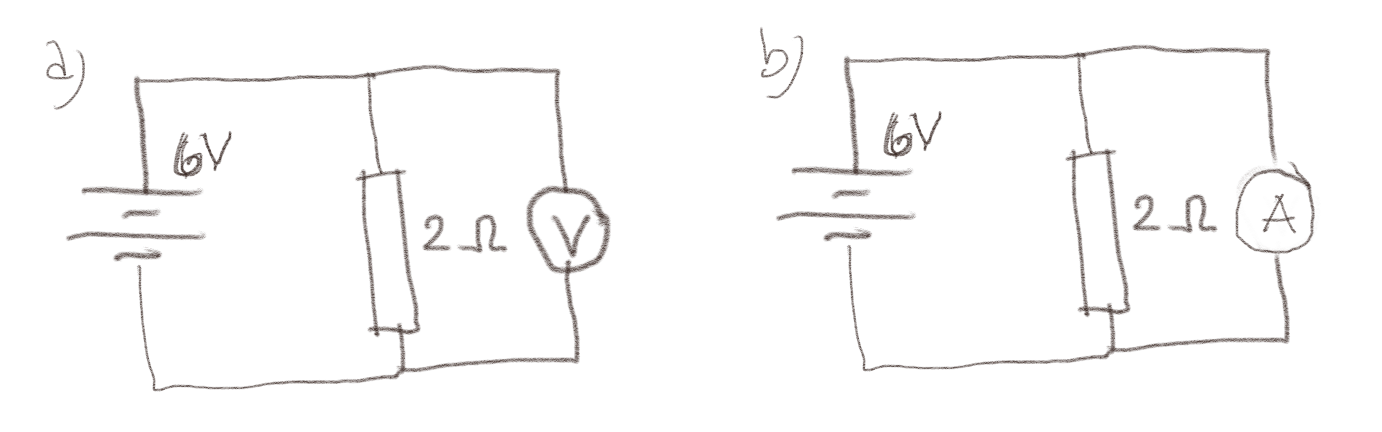 a)
6V
2 Ω
V
b)
6V
2 Ω
A